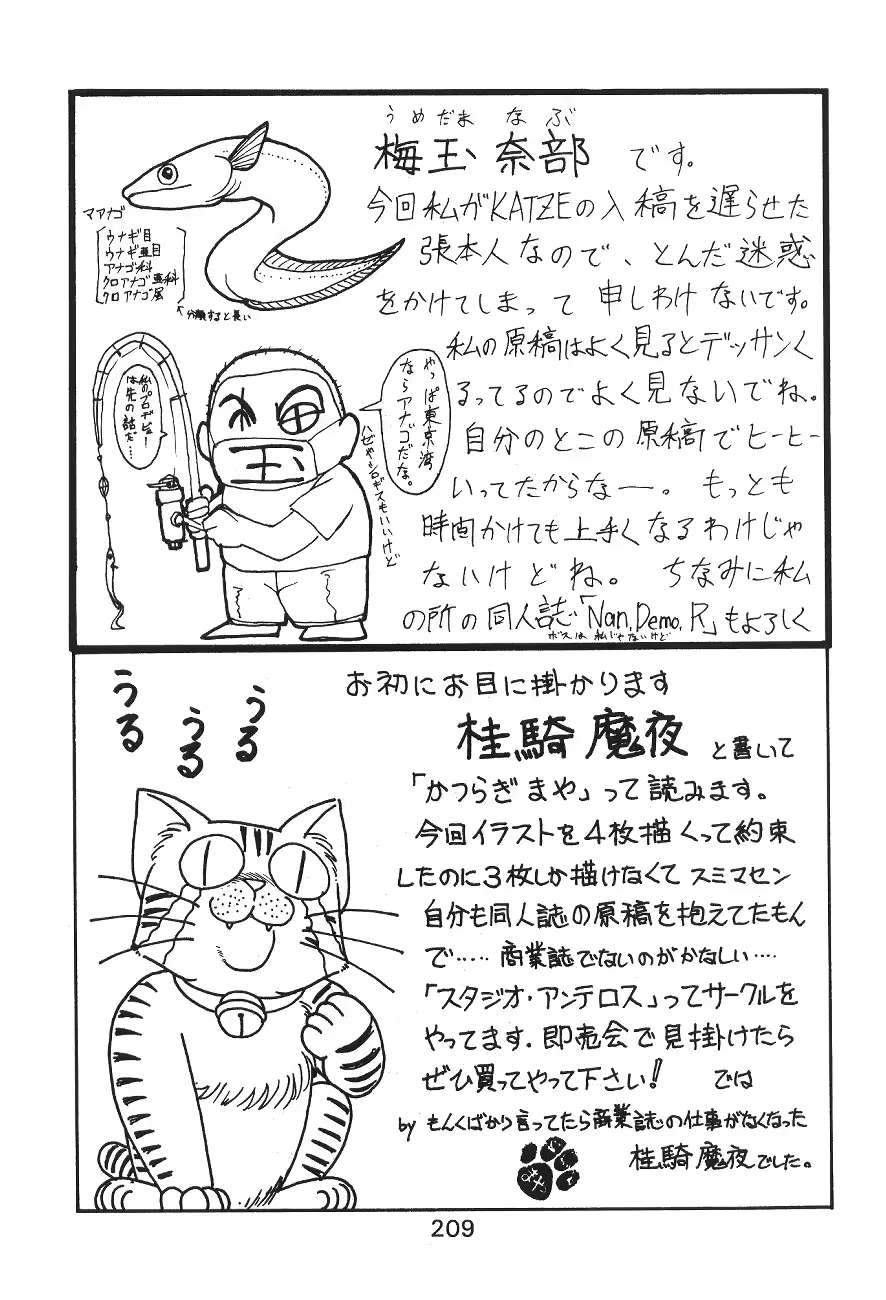 うめだま なぶ
梅玉 奈部 です。
今回私がKATZEの入稿を遅らせた
張本人なので、とんだ迷惑
をかけてしまって申しわけないです。
私の原稿はよく見るとデッサンく
るってるのでよく見ないでね。
自分のとこの原稿でヒーヒー
いってたからなー。もっとも
時間かけても上手くなるわけじゃ
ないけどね。ちなみに私
の所の同人誌「Nan,Demo,R」もよろしく
ボスは私じゃないけど
マアナゴ
ウナギ目
ウナギ亜目
アナゴ科
クロアナゴ亜科
クロアナゴ属
↖分類すると長い
やっぱ東京湾
ならアナゴだな。
ハゼやシロギスもいいけど
私のプロデビュー
は先の話だ…
梅
玉
お初にお目に掛かります
桂騎魔夜 と書いて
「かつらぎまや」って読みます。
今回イラストを4枚描くって約束
したのに3枚しか描けなくてスミマセン
自分も同人誌の原稿を抱えてたもん
で…… 商業誌でないのがかなしい……
「スタジオ・アンテロス」ってサークルを
やってます.即売会で見掛けたら
ぜひ買ってやって下さい! では
by もんくばかり言ってたら商業誌の仕事がなくなった
桂騎魔夜でした。
まや
うる
うる
うる
209